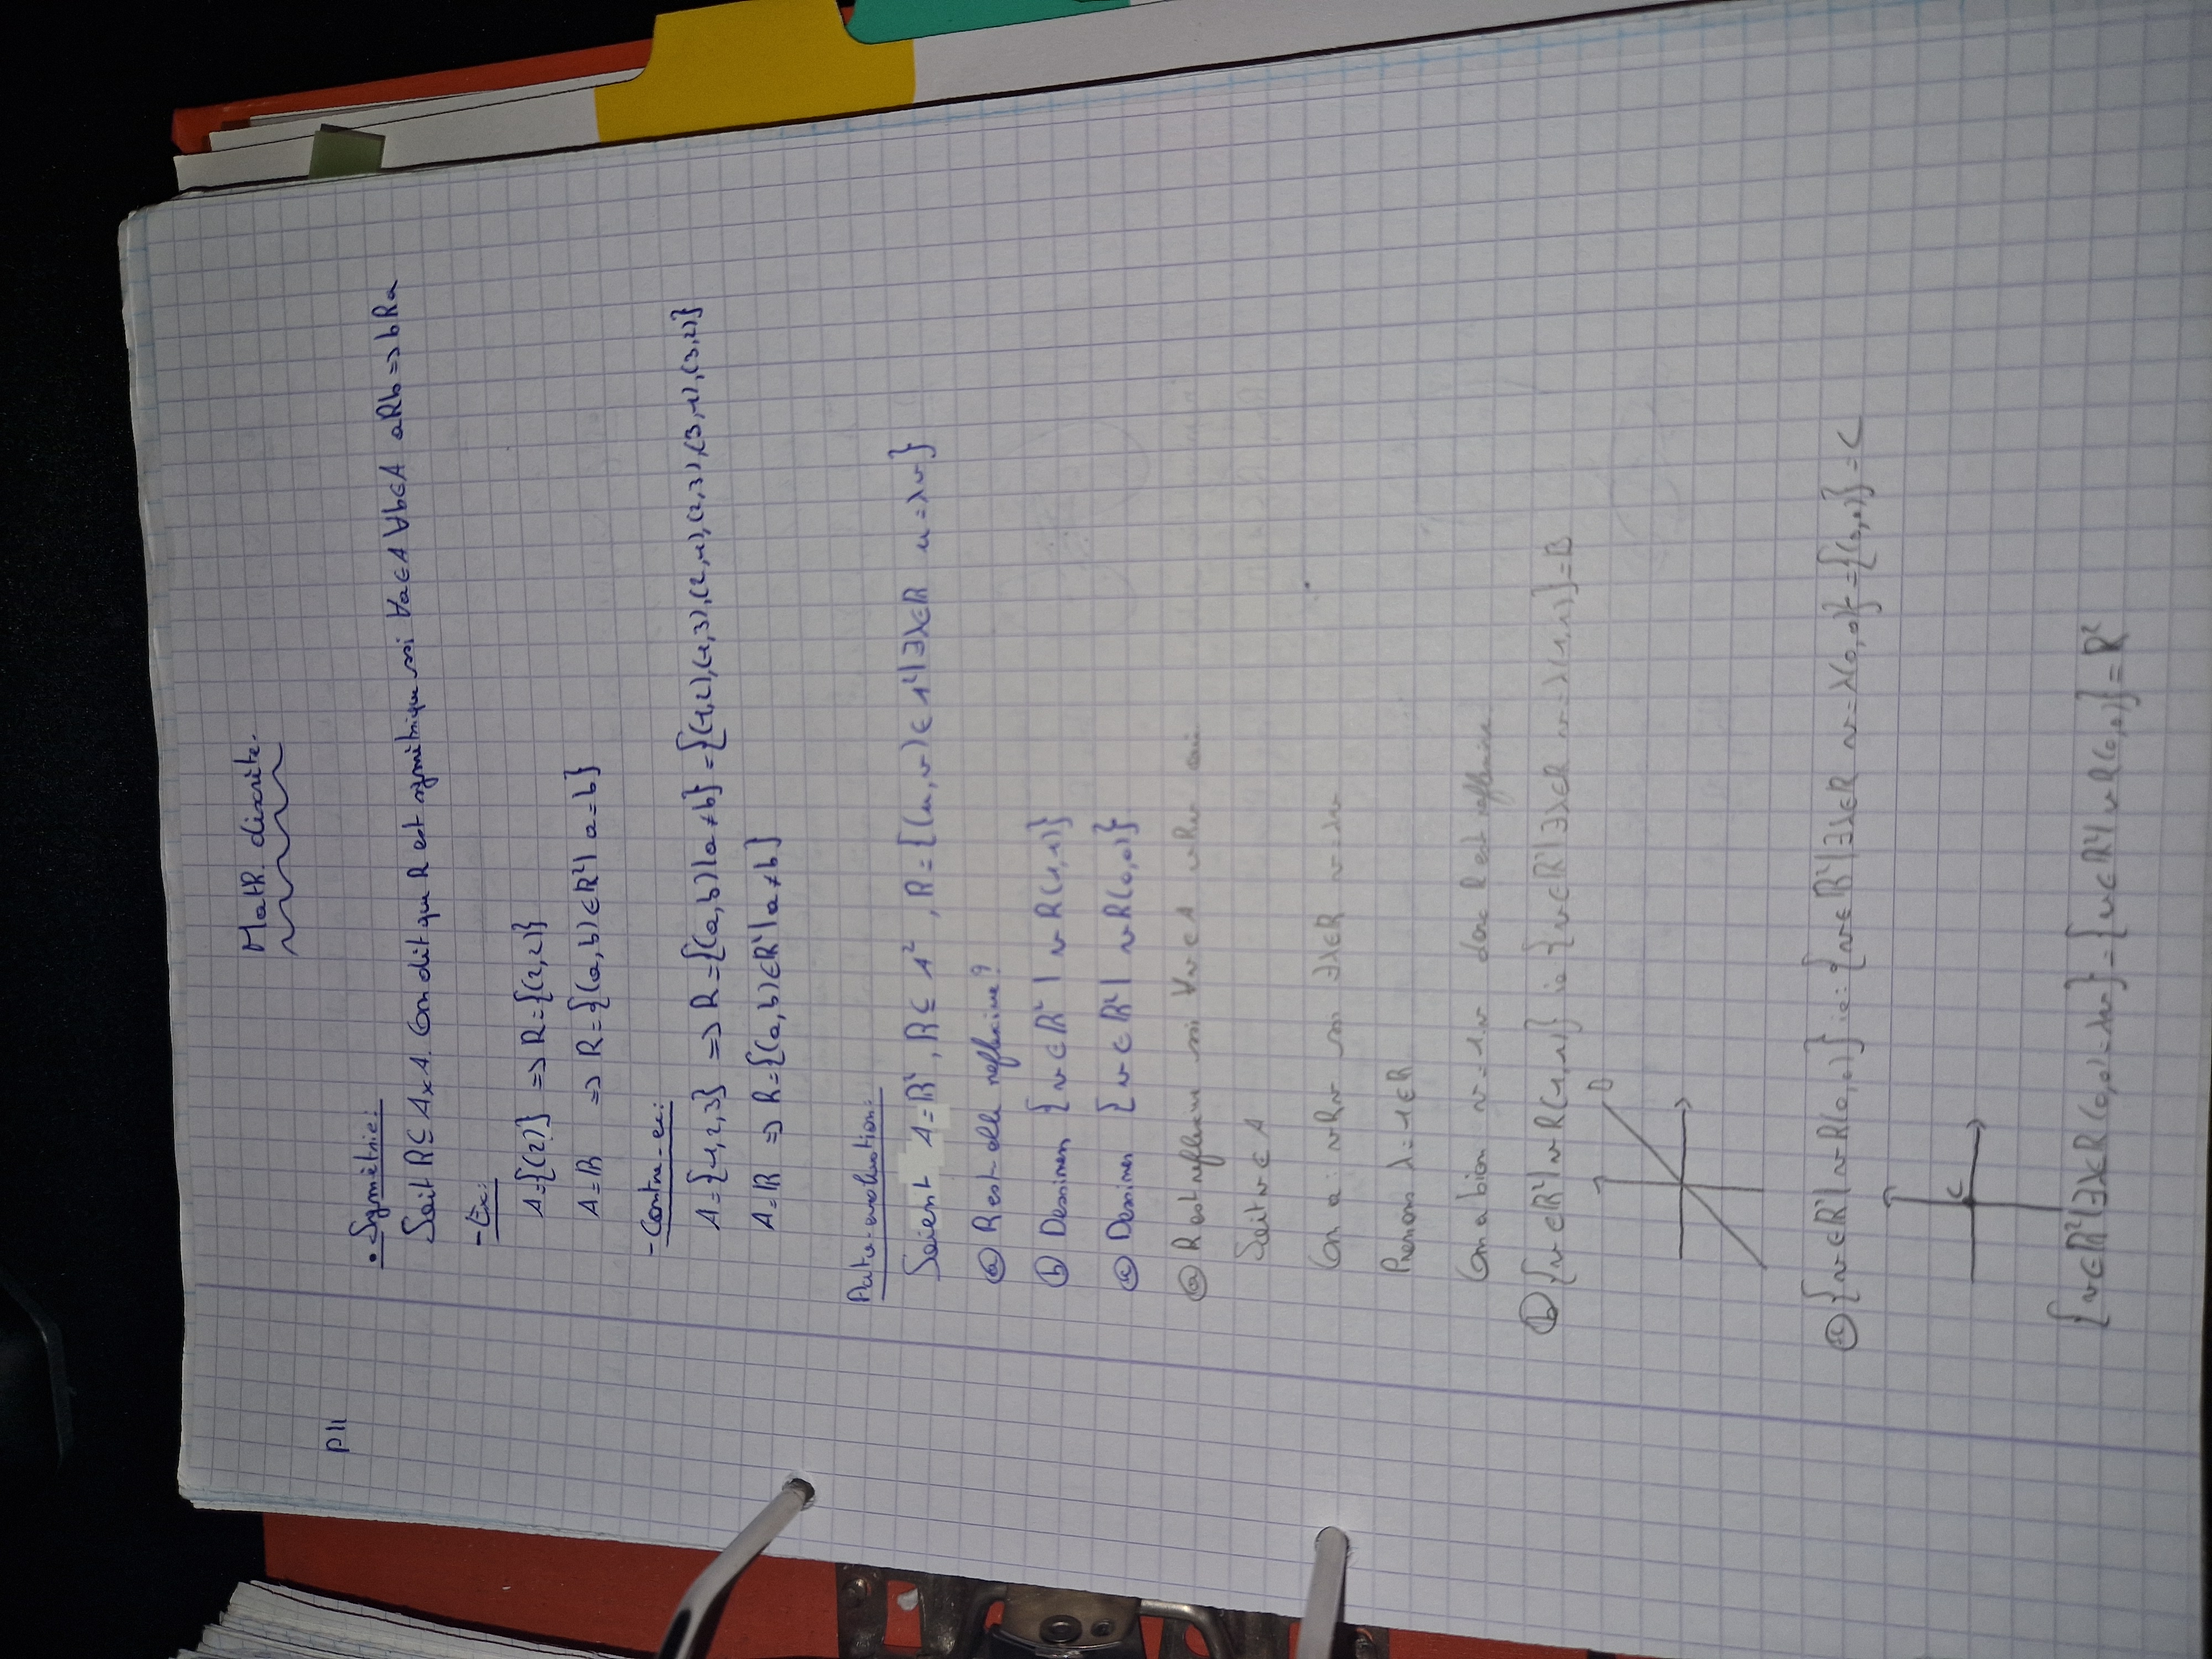 Math. discrète.
P11
• Symétrie:
Soit R ⊆ A×A. On dit que R est symétrique ssi ∀a∈A ∀b∈A aRb => bRa
- Ex:
A={(2)} => R={(2,2)}
A=ℝ => R={(a,b)∈ℝ²| a=b}
- Contre-ex:
A={1,2,3} => R={(a,b)|a≠b} = {(1,2),(1,3),(2,1),(2,3),(3,1),(3,2)}
A=ℝ => R={(a,b)∈ℝ²|a≠b}
Auto-evaluation:
Soient A=ℝ², R⊆A², R={(u,v)∈A²|∃λ∈ℝ u=λv}
ⓐ R est-elle reflexive?
ⓑ Dessiner {v∈ℝ² | vR(1,1)}
ⓒ Dessiner {v∈ℝ² | vR(0,0)}
ⓐ R est reflexive ssi ∀v∈A vRv oui
Soit v∈A
On a: vRv ssi ∃λ∈ℝ v=λv
Prenons λ=1∈ℝ
On a bien v=1.v donc R est reflexive.
ⓑ {v∈ℝ²|vR(1,1)} ie {v∈ℝ²|∃λ∈ℝ v=λ(1,1)}=B
B
ⓒ {v∈ℝ²|vR(0,0)} ie: {v∈ℝ²|∃λ∈ℝ v=λ(0,0)}={(0,0)}=C
C
{v∈ℝ²|∃λ∈ℝ (0,0)=λv}={v∈ℝ²|vR(0,0)}=ℝ²